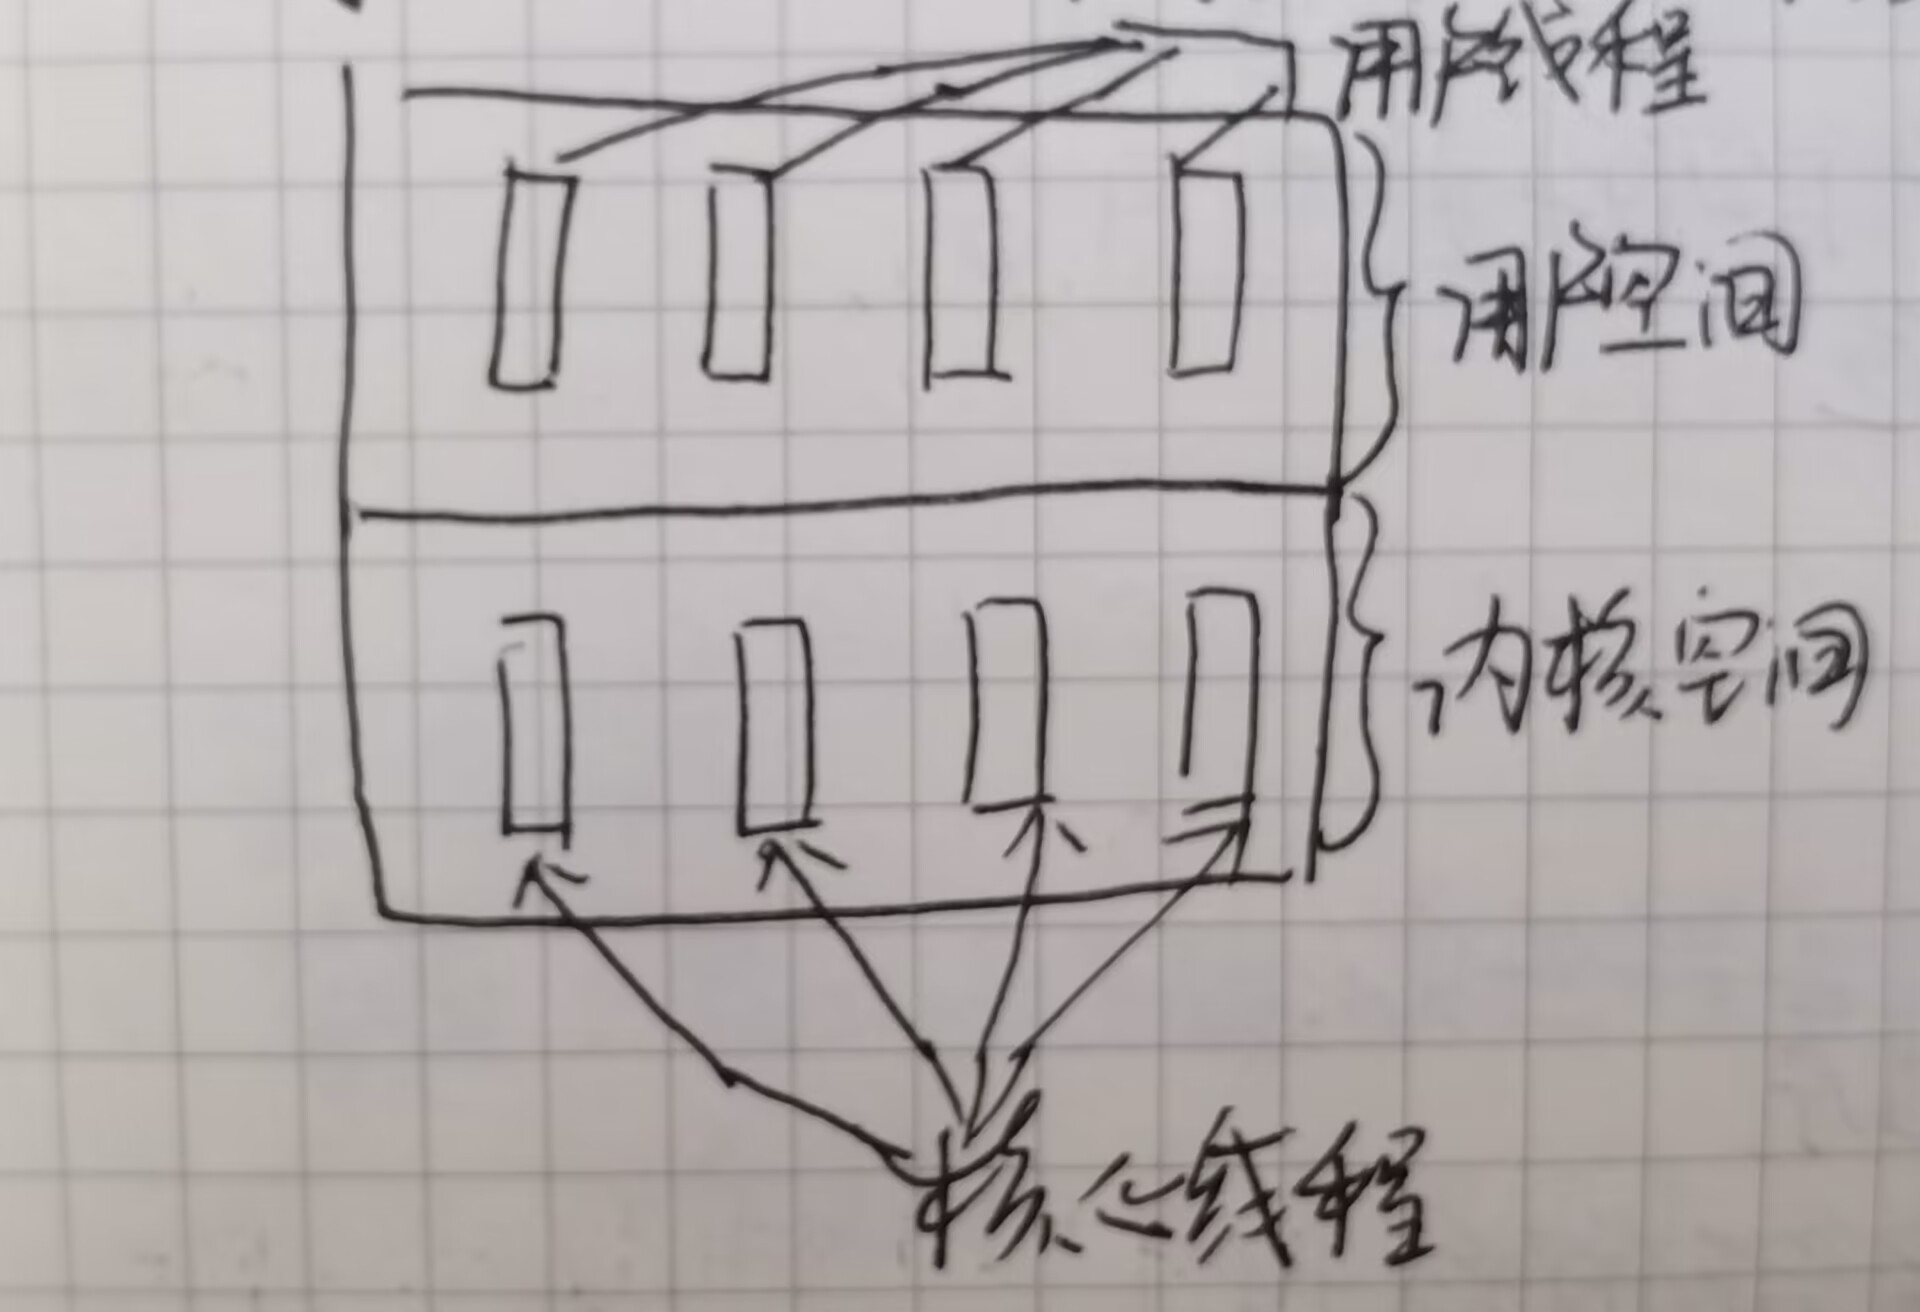 用户线程
用户空间
内核空间
核心线程